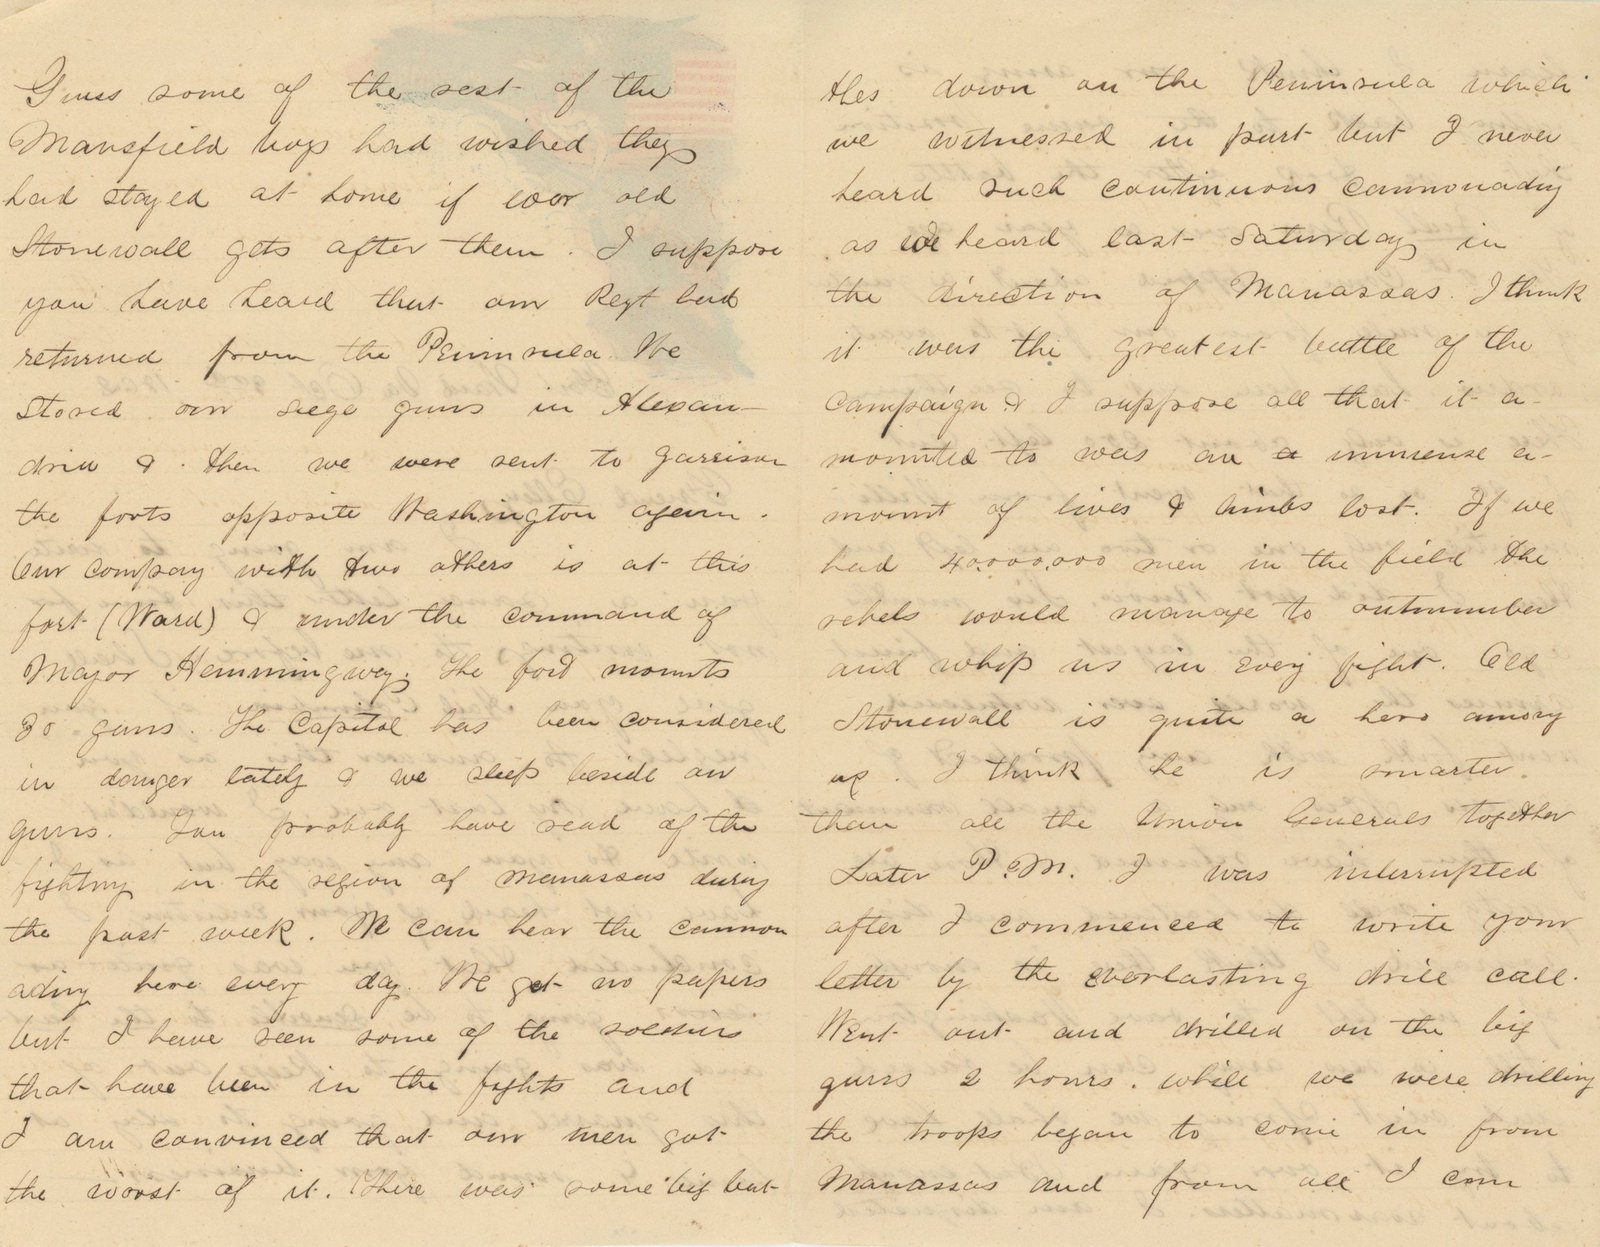 Guess some of the rest of the
Mansfield boys had wished they
had stayed at home if ever old
Stonewall gets after them. I suppose
you have heard that our Regt had
returned from the Peninsula. We
stored our siege guns in Alexan-
dria & then we were sent to garrison
the forts opposite Washington again.
Our company with two others is at this
fort (Ward) & under the command of
Major Hemmingway. The fort mounts
30 guns. The Capitol has been considered
in danger lately & we sleep beside our
guns. You probably have read of the
fighting in the region of Manassas during
the past week. We can hear the cannon
ading here every day. We get no papers
but I have seen some of the soldiers
that have been in the fights and
I am convinced that our men got
the worst of it. There was some big bat
tles down on the Peninsula which
we witnessed in part but I never
heard such continuous cannonading
as we heard last Saturday in
the direction of Manassas. I think
it was the greatest battle of the
campaign & I suppose all that it a-
mounted to was an a immense a-
mount of lives & limbs lost. If we
had 40,000,000 men in the field the
rebels would manage to outnumber
and whip us in every fight. Old
Stonewall is quite a hero among
us. I think he is smarter.
than all the Union Generals together
Later P.M. I was interrupted
after I commenced to write your
letter by the everlasting drill call.
Went out and drilled on the big
guns 2 hours. while we were drilling
the troops began to come in from
Manassas and from all I can